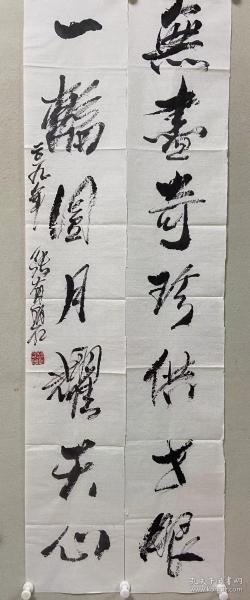 無盡奇珍供世眼
一輪圓月耀天心